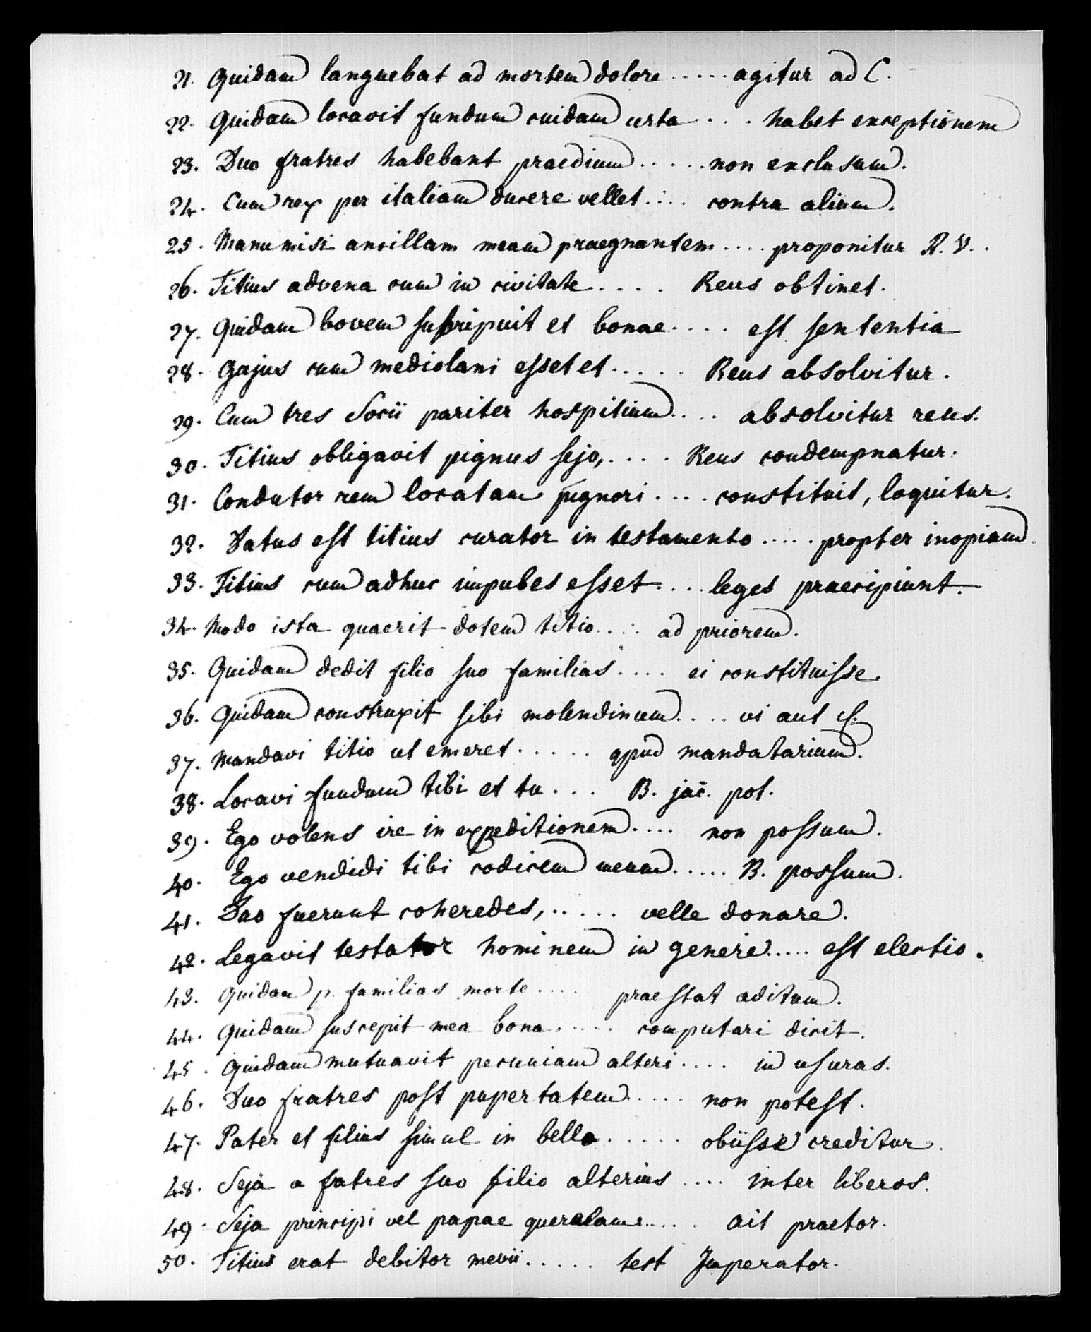 21. Quidam languebat ad mortem dolore ...... agitur ad C.
22. Quidam locavit fundum cuidam certa ... habet exceptionem
23. Duo fratres habebant praedium ...... non exclusum.
24. Cum rex per italiam ducere vellet .... contra alium.
25. Manumisi ancillam meam praegnantem .... proponitur R. V..
26. Titius advena cum in civitate ..... Reus obtinet.
27. Quidam bovem surripuit et bonae .... est sententia
28. Gajus cum mediolani esset et ..... Reus absolvitur.
29. Cum tres Socii pariter hospitium .... absolvitur reus.
30. Titius obligavit pignus sejo, .... Reus condempnatur.
31. Condutor rem locatam pignori .... constituit, loquitur.
32. Datus est titius curator in testamento ..... propter inopiam.
33. Titius cum adhuc impubes esset .... leges praecipiunt.
34. Modo ista quaerit dotem titio .... ad priorem.
35. Quidam dedit filio suo familias .... ei constituisse.
36. Quidam construxit sibi molendinum .... vi aut cl.
37. Mandavi titio ut emeret ..... apud mandatarium.
38. Locavi fundum tibi et tu ... B. jac. pot.
39. Ego volens ire in expeditionem .... non possum.
40. Ego vendidi tibi codicem meum ..... B. possum.
41. Duo fuerunt coheredes, ..... velle donare.
42. Legavit testator hominem in genere ..... est electio.
43. Quidam p. familias morte .... praestat aditum.
44. Quidam suscepit mea bona ..... computari dicit.
45. Quidam mutuavit pecuniam alteri .... in usuras.
46. Duo fratres post pupertatem ..... non potest.
47. Pater et filius simul in bello ...... obiisse creditur.
48. Seja a fatres suo filio alterius .... inter liberos.
49. Seja principi vel papae querelam ...... ait praetor.
50. Titius erat debitor mevii ..... test Imperator.